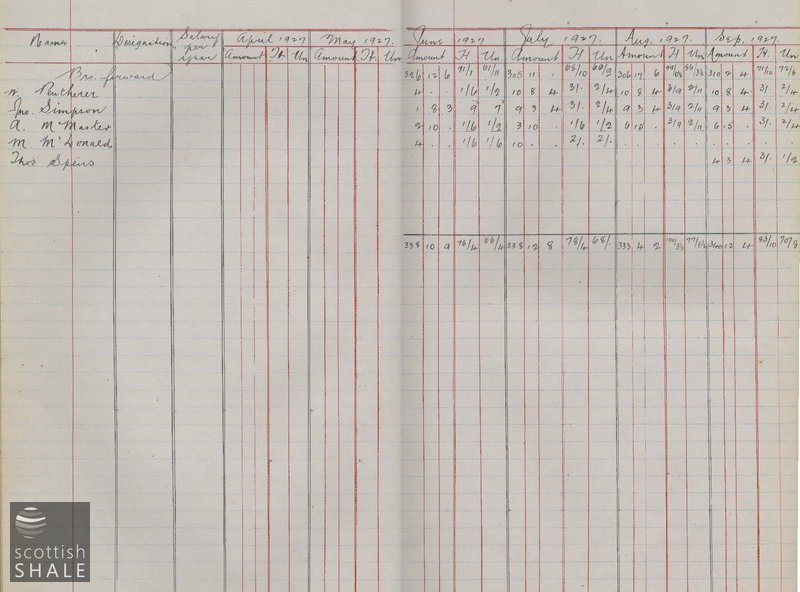 Name Designation Salary per year April 1927 May 1927. June 1927 July 1927. Aug. 1927. Sep. 1927.
Amount H. Un Amount H. Un Amount H Un Amount H Un Amount H Un Amount H. Un
Bro. forward 326 12 6 71/1 61/11 305 11 . 68/10 60/2 306 17 6 310 2 4 71/10 72/8
W. Pentherer 4 . . 1/6 1/2 10 8 4 3/. 2/4 10 8 4 3/9 2/11 10 8 4 3/. 2/4
Jno. Simpson 1 8 3 9 7 9 3 4 3/. 2/4 9 3 4 3/9 2/11 9 3 4 3/. 2/4
A. McMaster 2 10 . 1/6 1/2 3 10 . 1/6 1/2 6 15 . 3/9 2/11 6 15 . 3/. 2/4
M. McDonald 4 . . 1/6 1/6 10 . . 2/. 2/.
Thos Speirs 4 3 4 3/. 1/2
338 10 9 76/4 66/4 338 12 8 78/4 68/. 333 4 2 340 12 4 83/10 70/8
scottish
SHALE